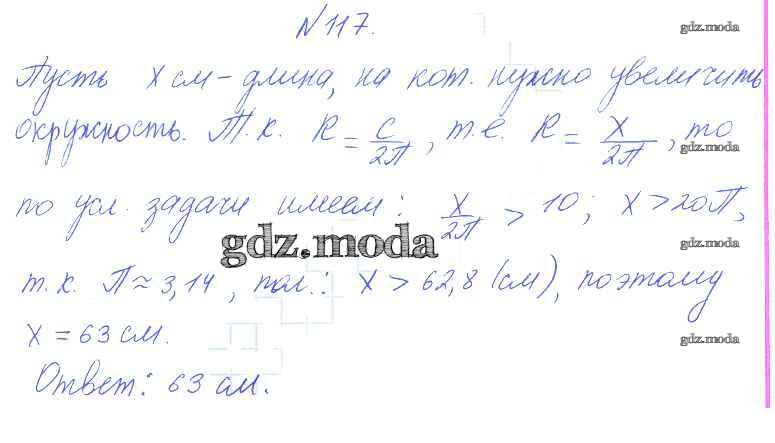 №117. gdz.moda
Пусть х см – длина, на кот. нужно увеличить
окружность. Т.к. R = C/2П, т.е. R = X/2П, то gdz.moda
по усл. задачи имеем: X/2П > 10; X > 20П, gdz.moda
gdz.moda
т.к. П ≈ 3,14, пол.: X > 62,8 (см), поэтому
X = 63 см. gdz.moda
Ответ: 63 см.